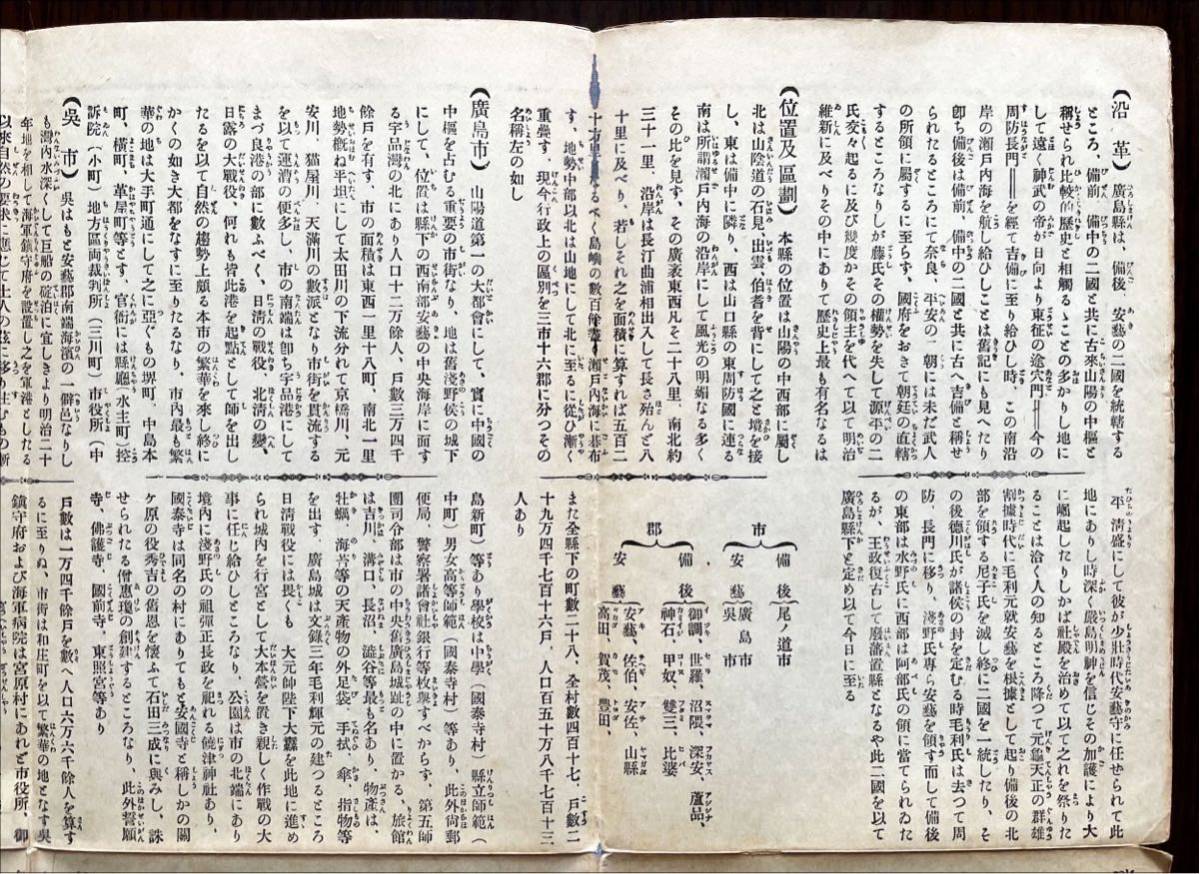 (沿革) 廣島縣は、備後、安藝の二國を統轄する
ところ、備前、備中の二國と共に古來山陽の中樞と
稱せられ比較的歷史と相觸るゝことの多かりし地に
して遠く神武の帝が日向より東征の途穴門══今の
周防長門══を經て吉備に至り給ひし時、この南沿
岸の瀨戸内海を航し給ひしことは舊記にも見へたり
卽ち備後は備前、備中の二國と共に古へ吉備と稱せ
られたるところにて奈良、平安の二朝には未だ武人
の所領に屬するに至らず、國府をおきて朝廷の直轄
するところなりしが藤氏その權勢を失して源平の二
氏交々起るに及び幾度かその領主を代へて以て明治
維新に及べりその中にありて歷史上最も有名なるは
平淸盛にして彼が少壯時代安藝守に任せられて此
地にありし時深く嚴島明神を信じその加護により大
に崛起したりしかば社殿を治めて以て之れを祭りた
ることは洽く人の知るところ降つて元龜天正の群雄
割據時代に毛利元就安藝を根據として起り備後の北
部を領する尼子氏を滅し終に二國を一統したり、そ
の後德川氏が諸侯の封を定むる時毛利氏は去つて周
防、長門に移り、淺野氏專ら安藝を領す而して備後
の東部は水野氏に西部は阿部氏の領に當てられゐた
るが、王政復古して廢藩置縣となるや此二國を以て
廣島縣下と定め以て今日に至る
(位置及區劃) 本縣の位置は山陽の中西部に屬し
北は山陰道の石見、出雲、伯耆を背にして之と境を接
し、東は備中に隣り、西は山口縣の東周防國に連る
南は所謂瀨戸内海の沿岸にして風光の明媚なる多く
その比を見ず、その廣袤東西凡そ二十八里、南北約
三十一里、沿岸は長汀曲浦相出入して長さ殆んど八
十里に及べり、若しそれ之を面積に算すれば五百二
十方里となるべく島嶼の數百餘、瀨戸内海に碁布
す、地勢中部以北は山地にして北に至るに從ひ漸く
重疊す、現今行政上の區別を三市十六郡に分つその
名稱左の如し
市
備後 尾ノ道市
安藝 廣島市 吳市
郡
備後 御調、世羅、沼隈、深安、蘆品、
神石、甲奴、雙三、比婆
安藝 安藝、佐伯、安佐、山縣
高田、賀茂、豊田、
また全縣下の町數二十八、全村數四百十七、戸數二
十九万四千七百十六戸、人口百五十万八千七百十三
人あり
(廣島市) 山陽道第一の大都會にして、實に中國の
中樞を占むる重要の市街なり、地は舊淺野侯の城下
にして、位置は縣下の西南部安藝の中央海岸に面す
る宇品灣の北にあり人口十二万餘人、戸數三万四千
餘戸を有す、市の面積は東西一里十八町、南北一里
地勢概ね平坦にして太田川の下流分れて京橋川、元
安川、猫屋川、天滿川の數派となり市街を貫流する
を以て運漕の便多し、市の南端は卽ち宇品港にして
まづ良港の部に數ふべく、日淸の戰役、北淸の變、
日露の大戰役、何れも皆此港を起點として師を出し
たるを以て自然の趨勢上頗る本市の繁華を來し終に
かくの如き大都をなすに至りたるなり、市内最も繁
華の地は大手町通にして之に亞ぐもの堺町、中島本
町、橫町、革屋町等とす、官衙には縣廳(水主町)控
訴院(小町)地方區兩裁判所(三川町)市役所(中
島新町)等あり學校は中學(國泰寺村)縣立師範(
中町)男女高等師範(國泰寺村)等あり、此外尙郵
便局、警察署諸會社銀行等枚擧すべからず、第五師
團司令部は市の中央舊廣島城趾の中に置かる、旅館
は吉川、溝口、長沼、澁谷等最も名あり、物產は、
牡蠣、海苔等の天產物の外足袋、手拭、傘、指物等
を出す、廣島城は文祿三年毛利輝元の建つるところ
日淸戰役には畏くも 大元帥陛下大纛を此地に進め
られ城内を行宮として大本營を置き親しく作戰の大
事に任じ給ひしところなり、公園は市の北端にあり
境内に淺野氏の祖彈正長政を祀れる饒津神社あり、
國泰寺は同名の村にありてもと安國寺と稱しかの關
ケ原の役秀吉の舊恩を懷ふて石田三成に與みし、誅
せられたる僧惠瓊の創建するところなり、此外誓願
寺、佛護寺、國前寺、東照宮等あり
(吳市) 吳はもと安藝郡南端海濱の一僻邑なりし
も灣内水深くして巨船の碇泊に宜しきより明治二十
年地を相して海軍鎭守府を設置し之を軍港としたる
以來自然の要求に應じて土人の玆に移り住むもの漸
戸數は一万四千餘戸を數へ人口六万六千餘人を算す
るに至りぬ、市街は和庄町を以て繁華の地となす吳
鎭守府および海軍病院は宮原村にあれど市役所、御